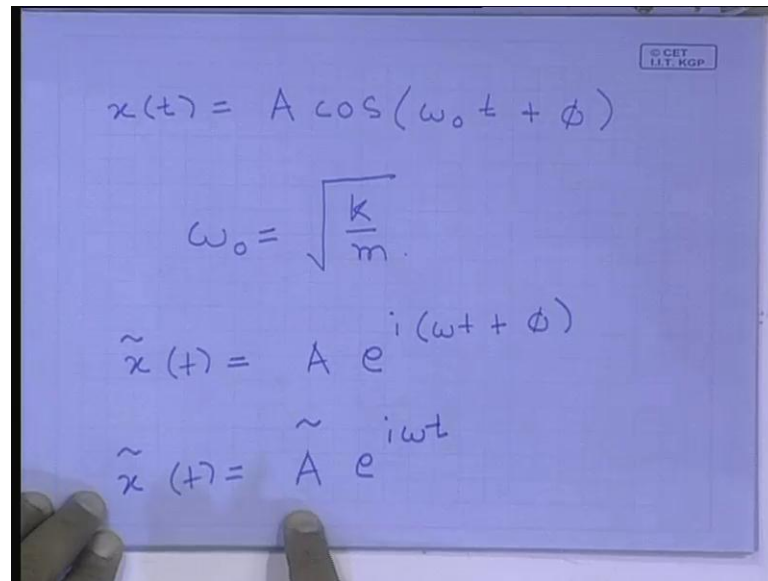 © CET
I.I.T. KGP
x(t) = A cos(ω₀t + φ)
ω₀ = √(k/m).
x̃(t) = A e^{i(ωt + φ)}
x̃(t) = Ã e^{iωt}